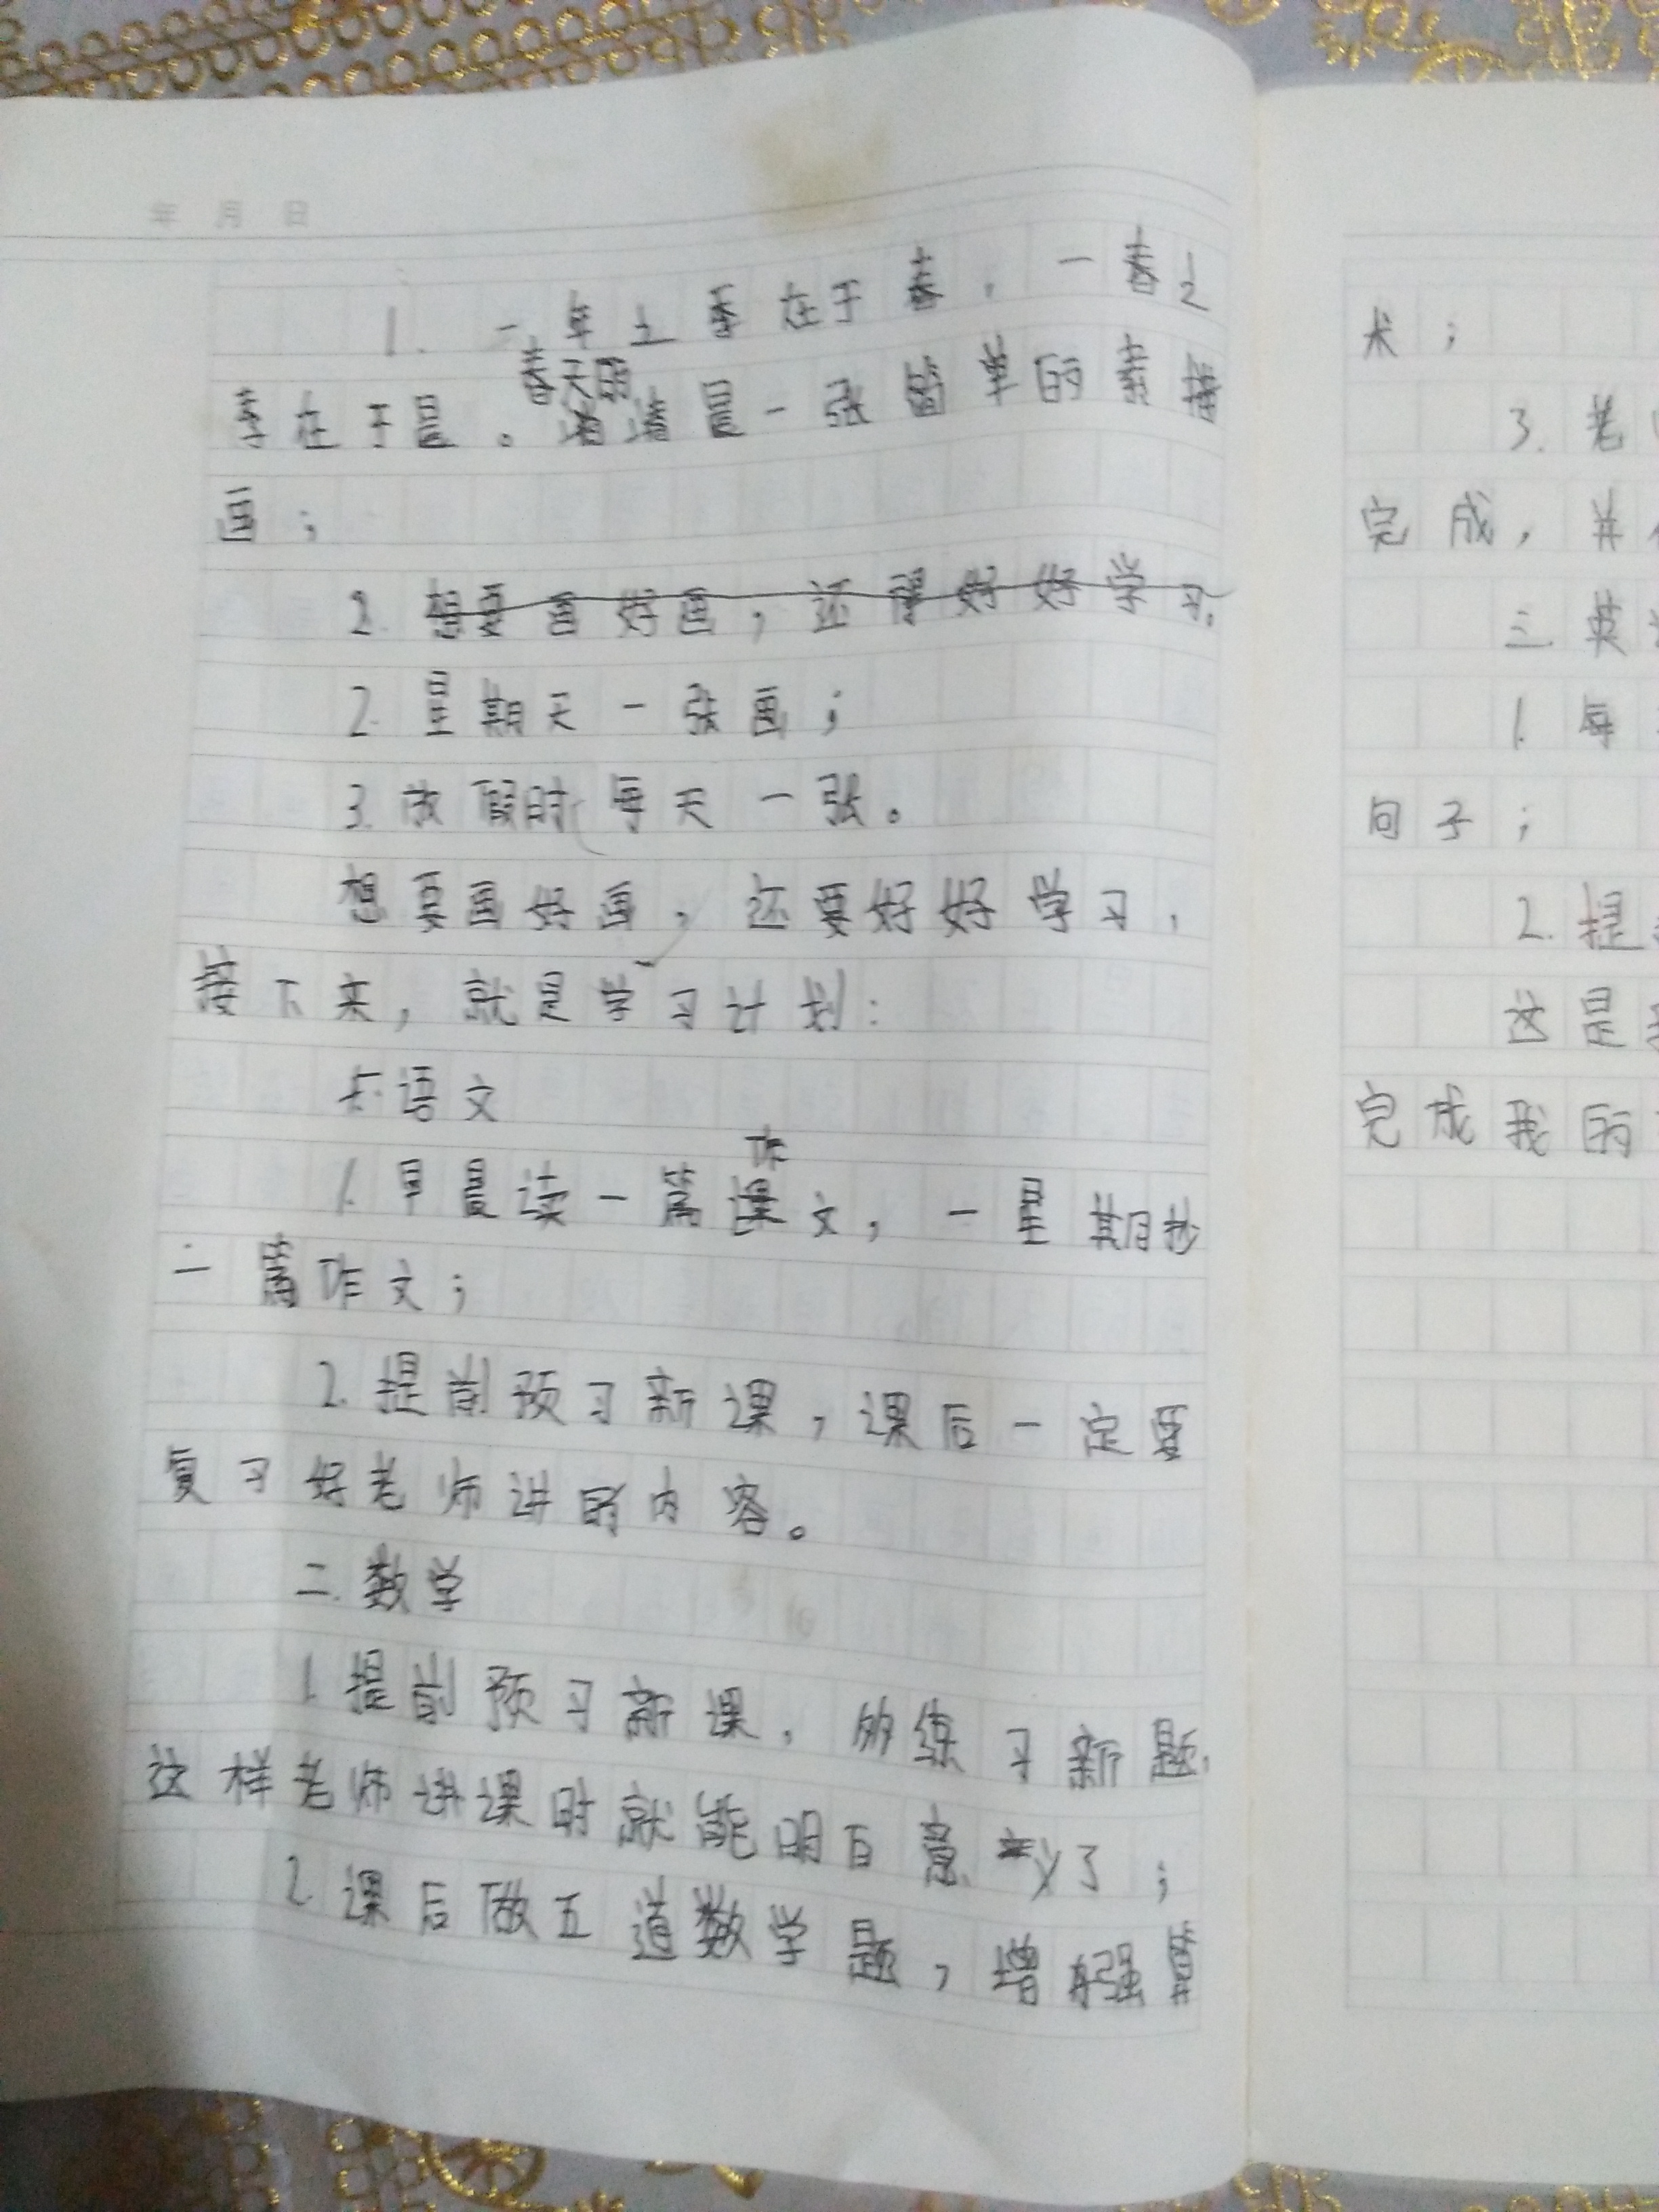 年 月 日
1. 一年之季在于春，一春之
季在于晨。春天的清晨一张简单的
画；
2. 想要画好画，还要好好学习。
2. 星期天一张画；
3. 放假时每天一张。
想要画好画，还要好好学习，
接下来，就是学习计划：
语文
1. 早晨读一篇作文，一星期抄
二篇作文；
2. 提前预习新课，课后一定要
复习好老师讲的内容。
二.数学
1 提前预习新课，多练习新题，
这样老师讲课时就能明白意义了；
2 课后做五道数学题，增强算
术；
3. 老
完成，并
三.英
1. 每
句子；
2. 提
这是
完成我的